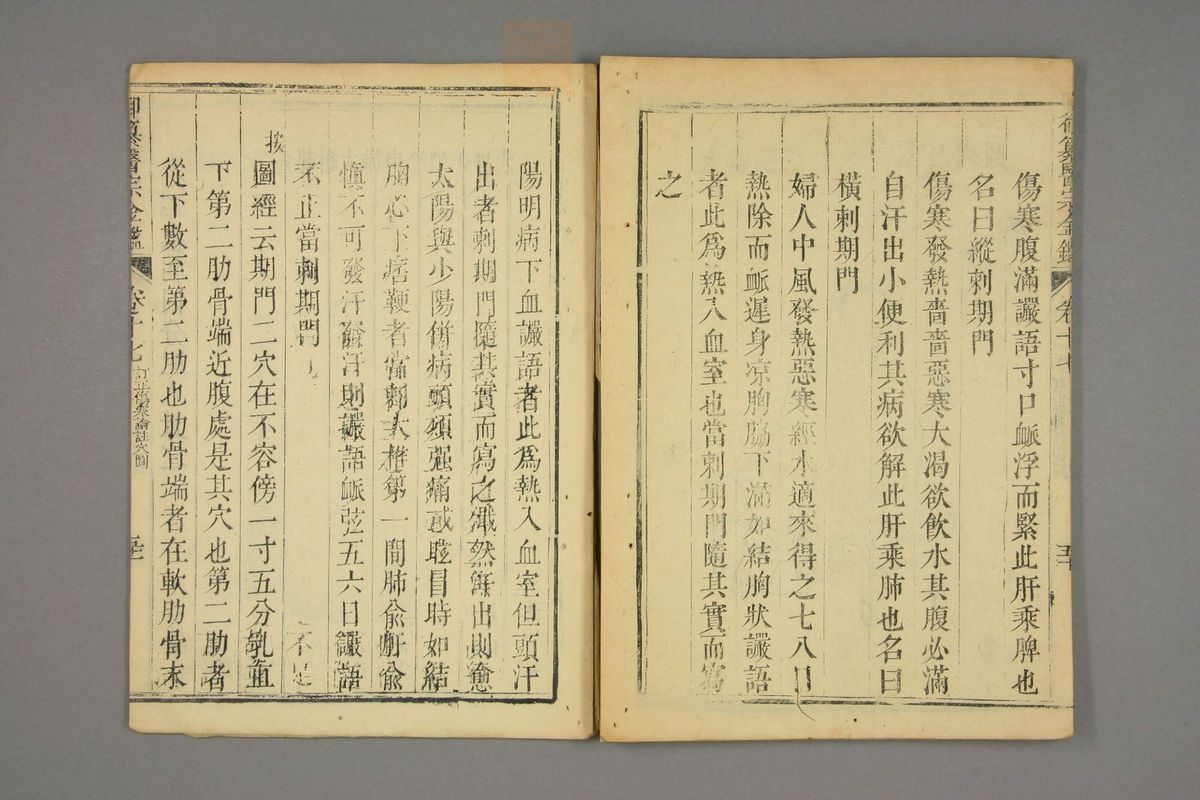 御纂醫宗金鑑 卷十七 五十
傷寒腹滿讝語寸口脈浮而緊此肝乘脾也
名曰縱刺期門
傷寒發熱嗇嗇惡寒大渴欲飲水其腹必滿
自汗出小便利其病欲解此肝乘肺也名曰
橫刺期門
婦人中風發熱惡寒經水適來得之七八日
熱除而脈遲身凉胸脇下滿如結胸狀讝語
者此爲熱入血室也當刺期門隨其實而寫
之
陽明病下血讝語者此爲熱入血室但頭汗
出者刺期門隨其實而寫之濈然汗出則愈
太陽與少陽併病頭項强痛或眩冒時如結
胸心下痞鞕者當刺大椎第一間肺俞肝俞
慎不可發汗發汗則讝語脈弦五六日讝語
不止當刺期門
按圖經云期門二穴在不容傍一寸五分乳直
下第二肋骨端近腹處是其穴也第二肋者
從下數至第二肋也肋骨端者在軟肋骨末
御纂醫宗金鑑 卷十七 訂正傷寒論註